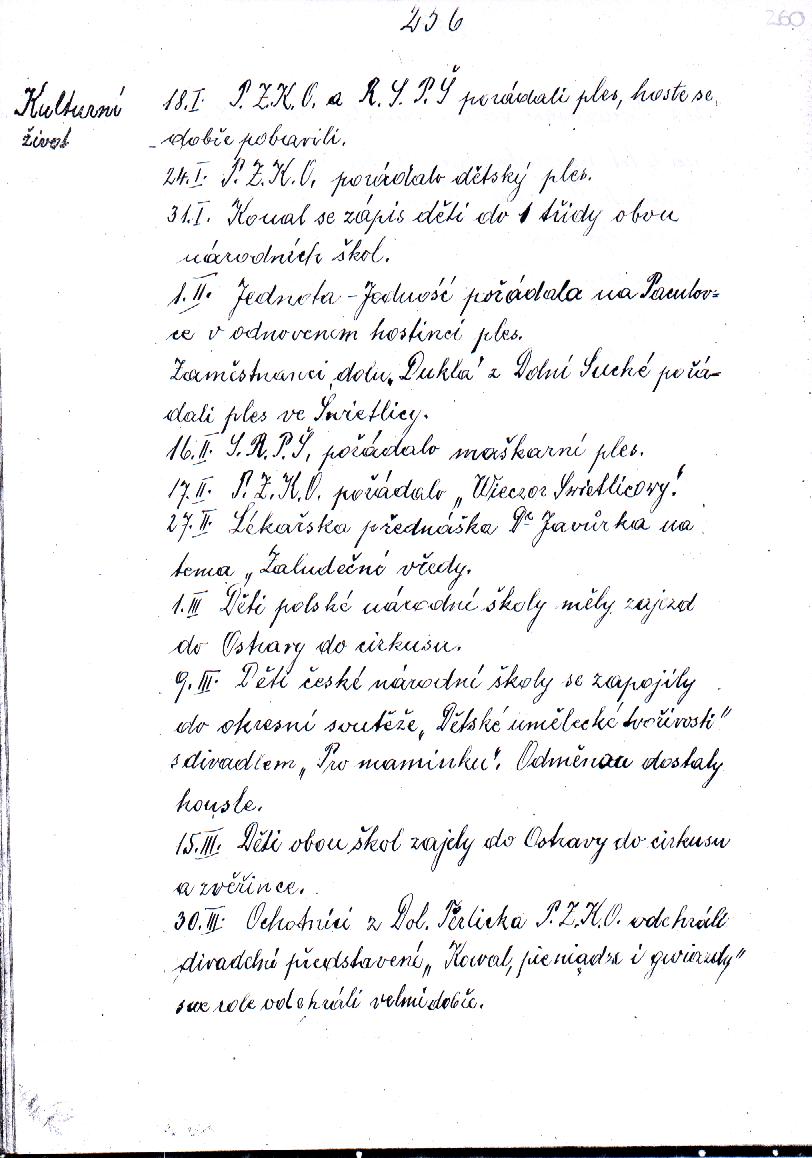 256
260
Kulturní
život
18.I. P.Z.K.O. a R.S.P.Š pořádali ples, hoste se
dobře pobavili.
24.I. P.Z.K.O. pořádalo dětský ples.
31.I. Konal se zápis dětí do 1 třídy obou
národních škol.
1.II. Jednota - Jedność pořádala na Paculov-
ce v odnovenem hostinci ples.
Zaměstnanci dolu „Dukla" z Dolní Suché pořá-
dali ples ve Świetlicy.
16.II. S.R.P.Š. pořádalo maškarní ples.
17.II. P.Z.K.O. pořádalo „Wieczor Swietlicowy."
27.II. Lékařska přednáška Dr Javůrka na
tema „Žaludeční vředy.
1.III Děti polské národní školy měly zajezd
do Ostravy do cirkusu.
9.III. Děti české národní školy se zapojily
do okresní soutěže „Dětské umělecké tvořivosti"
s divadlem „Pro maminku". Odměnou dostaly
housle.
15.III. Děti obou škol zajely do Ostravy do cirkusu
a zvěřince.
30.III. Ochotníci z Dol. Těrlicka P.Z.K.O. odehráli
divadelní představení „Kowal, pieniądze i gwiazdy"
sve role odehráli velmi dobře.